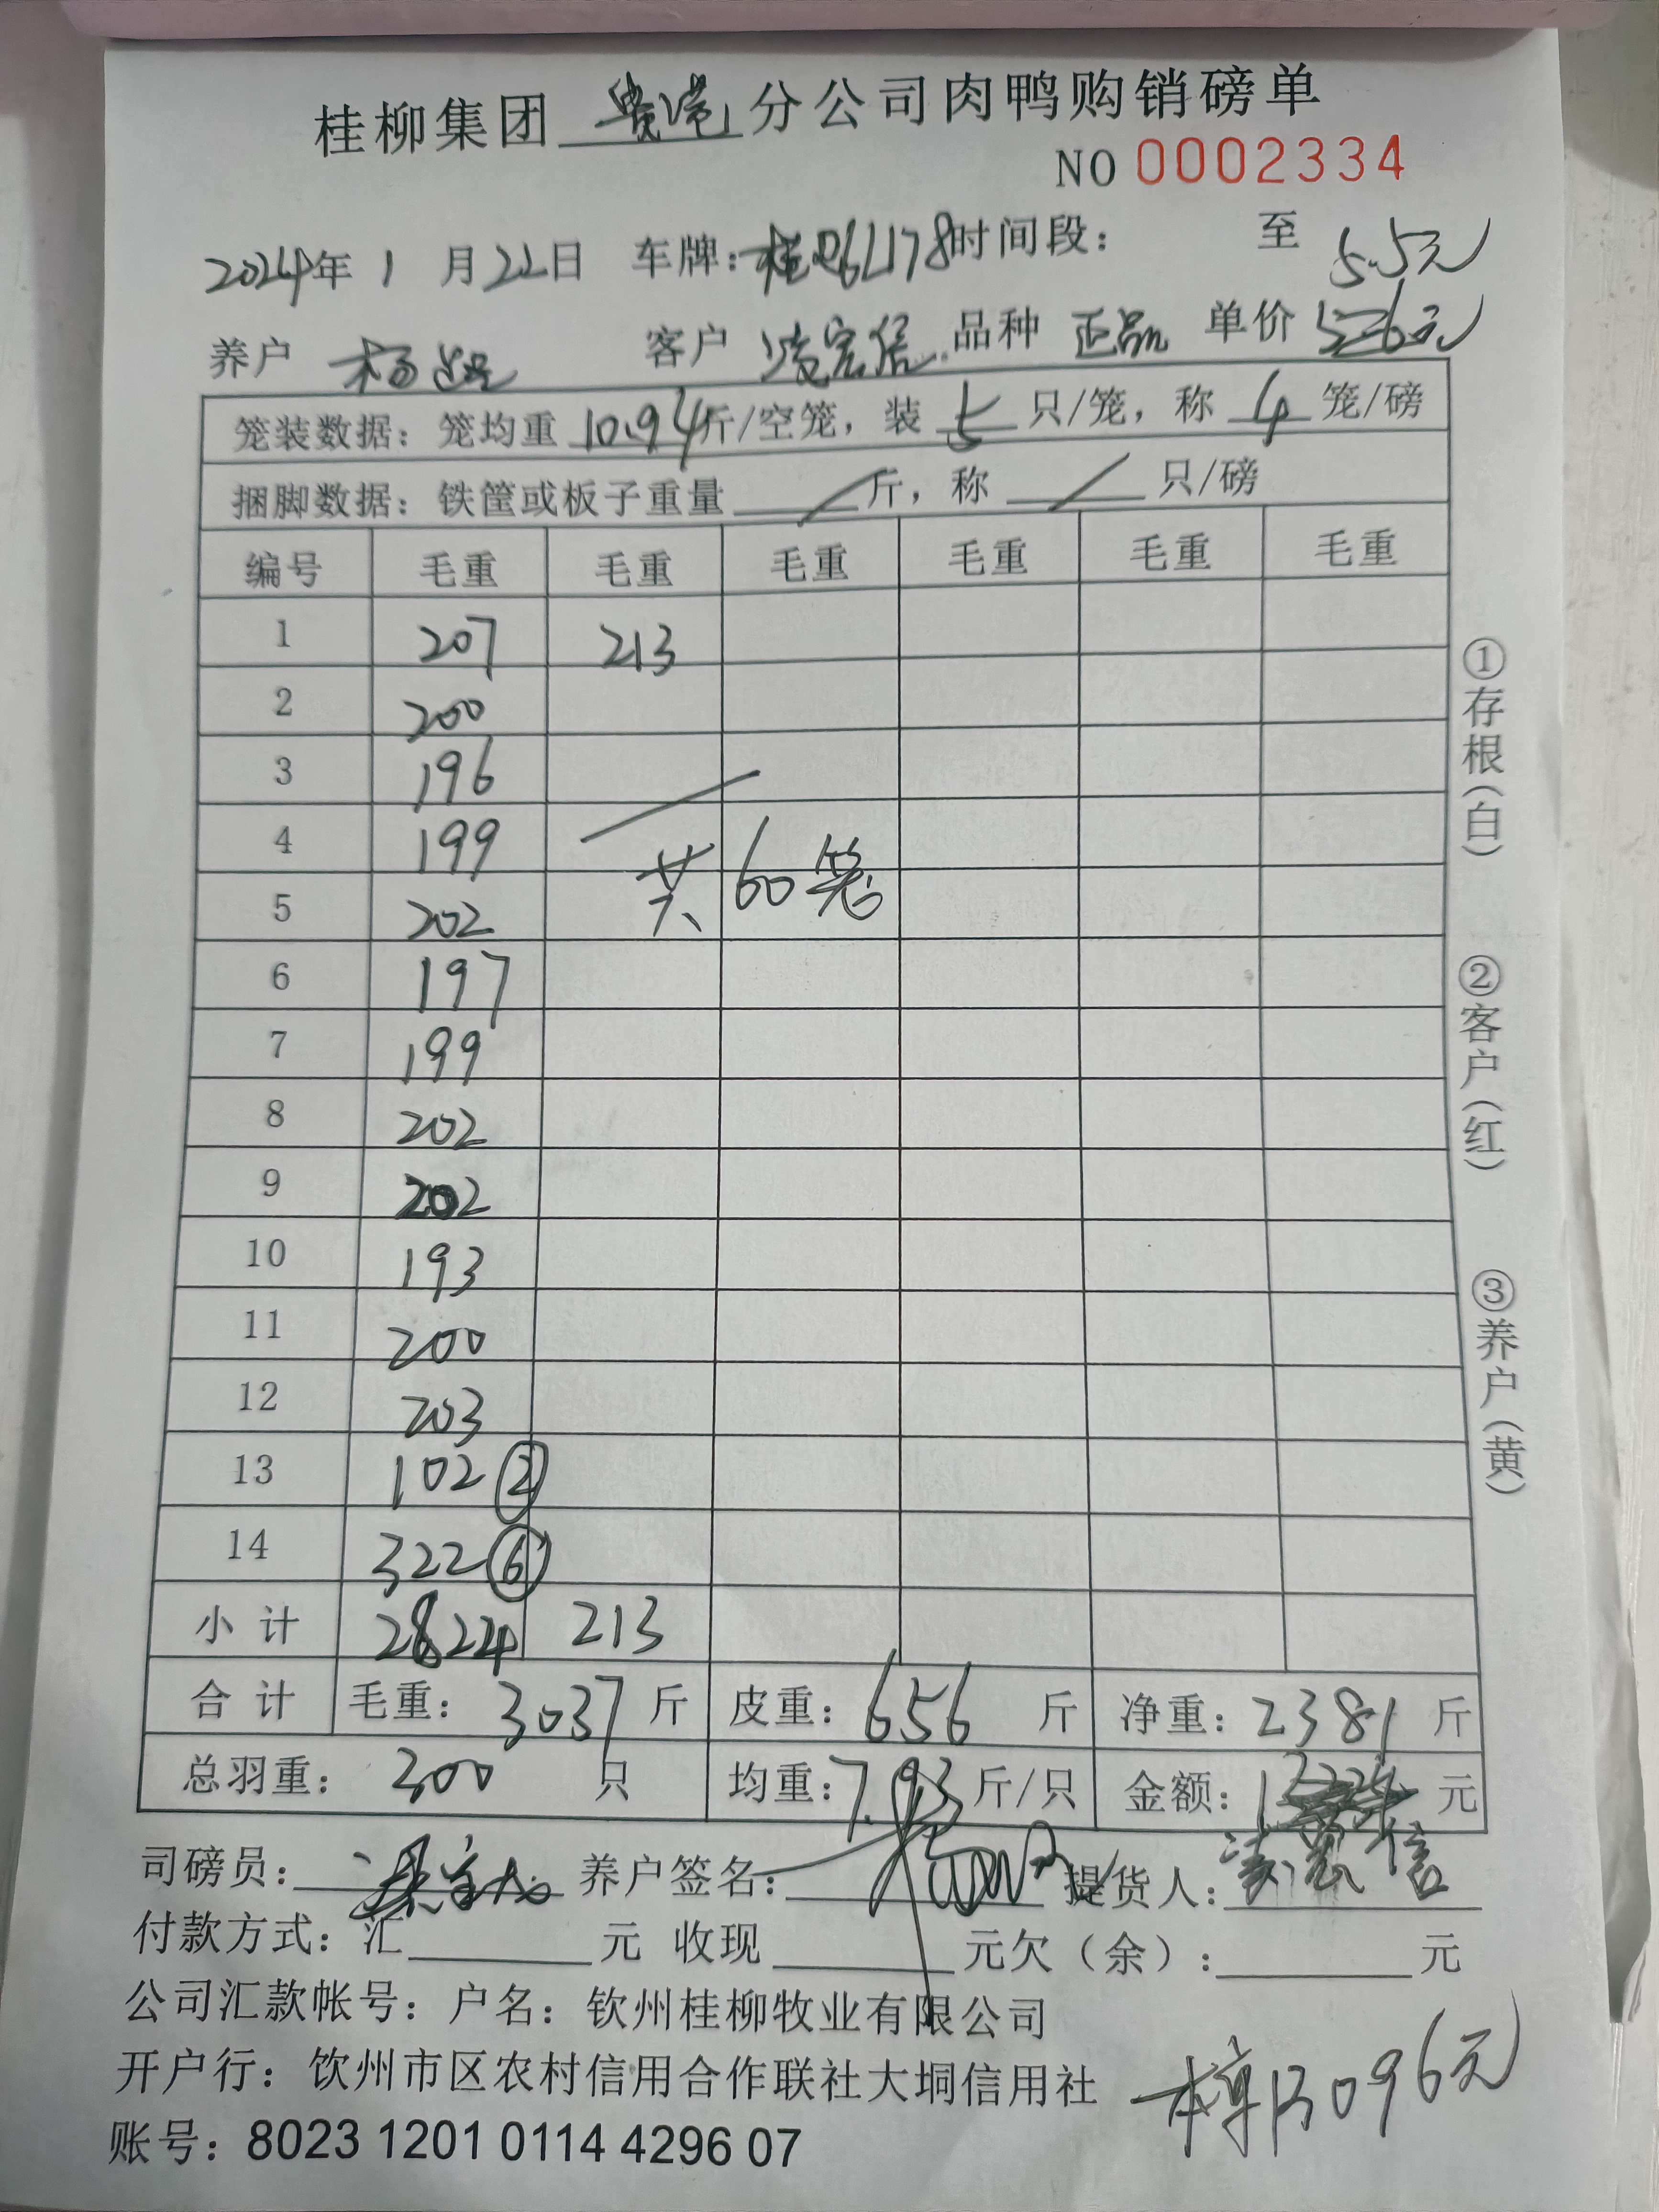 桂柳集团 贵港 分公司肉鸭购销磅单
NO 0002334
2024年 1 月 22日 车牌: 时间段: 至 5.5元
养户 杨 客户 凌宏信 品种 正品 单价
笼装数据: 笼均重 10.94斤/空笼, 装 5 只/笼, 称 4 笼/磅
捆脚数据: 铁筐或板子重量 / 斤, 称 / 只/磅
编号 毛重 毛重 毛重 毛重 毛重 毛重
1 207 213
2 200
3 196
4 199
5 202
共60笼
6 197
7 199
8 202
9 202
10 193
11 200
12 203
13 102 ②
14 322 ⑥
小计 2824 213
合计 毛重: 3037 斤 皮重: 656 斤 净重: 2381 斤
总羽重: 300 只 均重: 7.93 斤/只 金额: 元
司磅员: 养户签名: 提货人: 凌宏信
付款方式: 汇 元 收现 元欠(余): 元
公司汇款帐号: 户名: 钦州桂柳牧业有限公司
开户行: 钦州市区农村信用合作联社大垌信用社
13096元
账号: 8023 1201 0114 4296 07
①存根(白)
②客户(红)
③养户(黄)